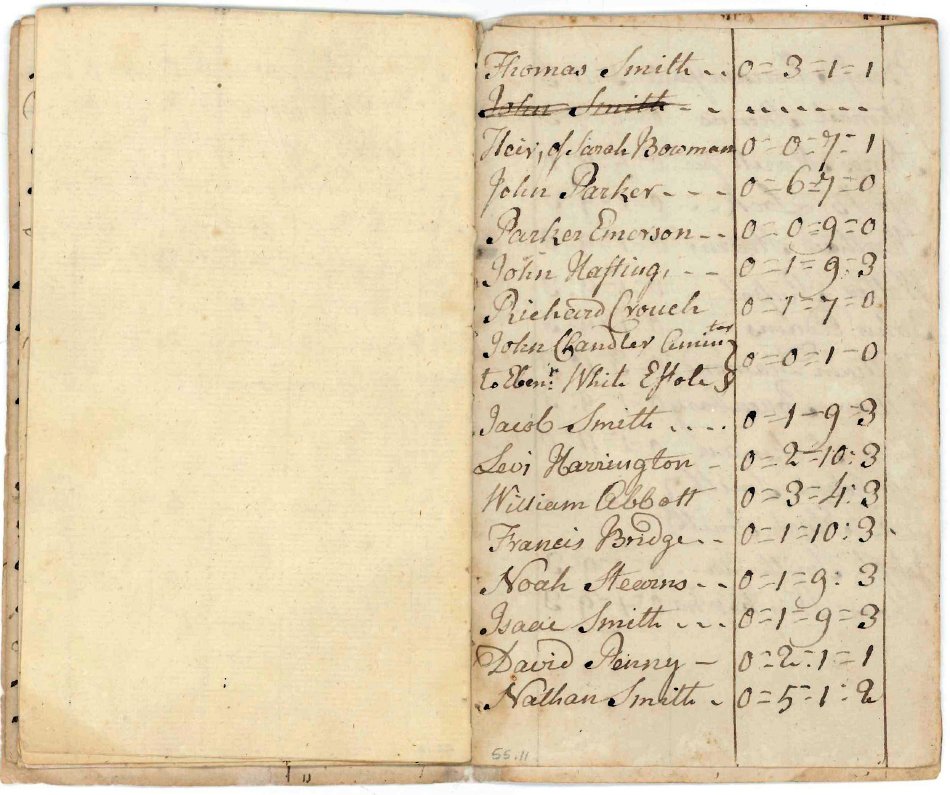 Thomas Smith - - 0 = 3 = 1 = 1
John Smith - - - - - - - -
Heirs of Sarah Bowman 0 = 0 = 7 = 1
John Parker - - - 0 = 6 = 7 = 0
Parker Emerson - - 0 = 0 = 9 = 0
John Hasting, - - 0 = 1 = 9 : 3
Richard Crouch 0 = 1 = 7 = 0
John Chandler Aminis tor
to Ebenr. White Estate 0 = 0 = 1 = 0
Jacob Smith . . . . 0 = 1 = 9 = 3
Levi Harrington - 0 = 2 = 10 : 3
William Abbott 0 = 3 = 4 : 3
Francis Bridge - - 0 = 1 = 10 : 3
Noah Stearns - - 0 = 1 = 9 : 3
Isaac Smith - - - 0 = 1 = 9 = 3
David Penny - 0 = 2 = 1 = 1
Nathan Smith - 0 = 5 = 1 : 2
55.11